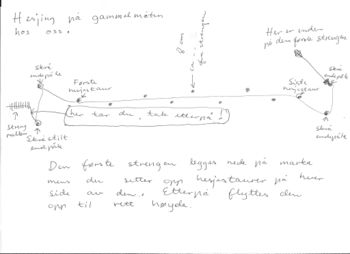 Hesjing på gammelmåten
hos oss.
Her er enden
på den første strengen
Skrå
endepåle
Første
hesjestaur
Siste
hesjestaur
Skrå
endepåle
her tar du tak etterpå!
Skråstilt
endepåle
Skrå
endepåle
Den første strengen legges nede på marka
mens du setter opp hesjestaurer på hver
side av den. Etterpå flyttes den
opp til rett høyde.